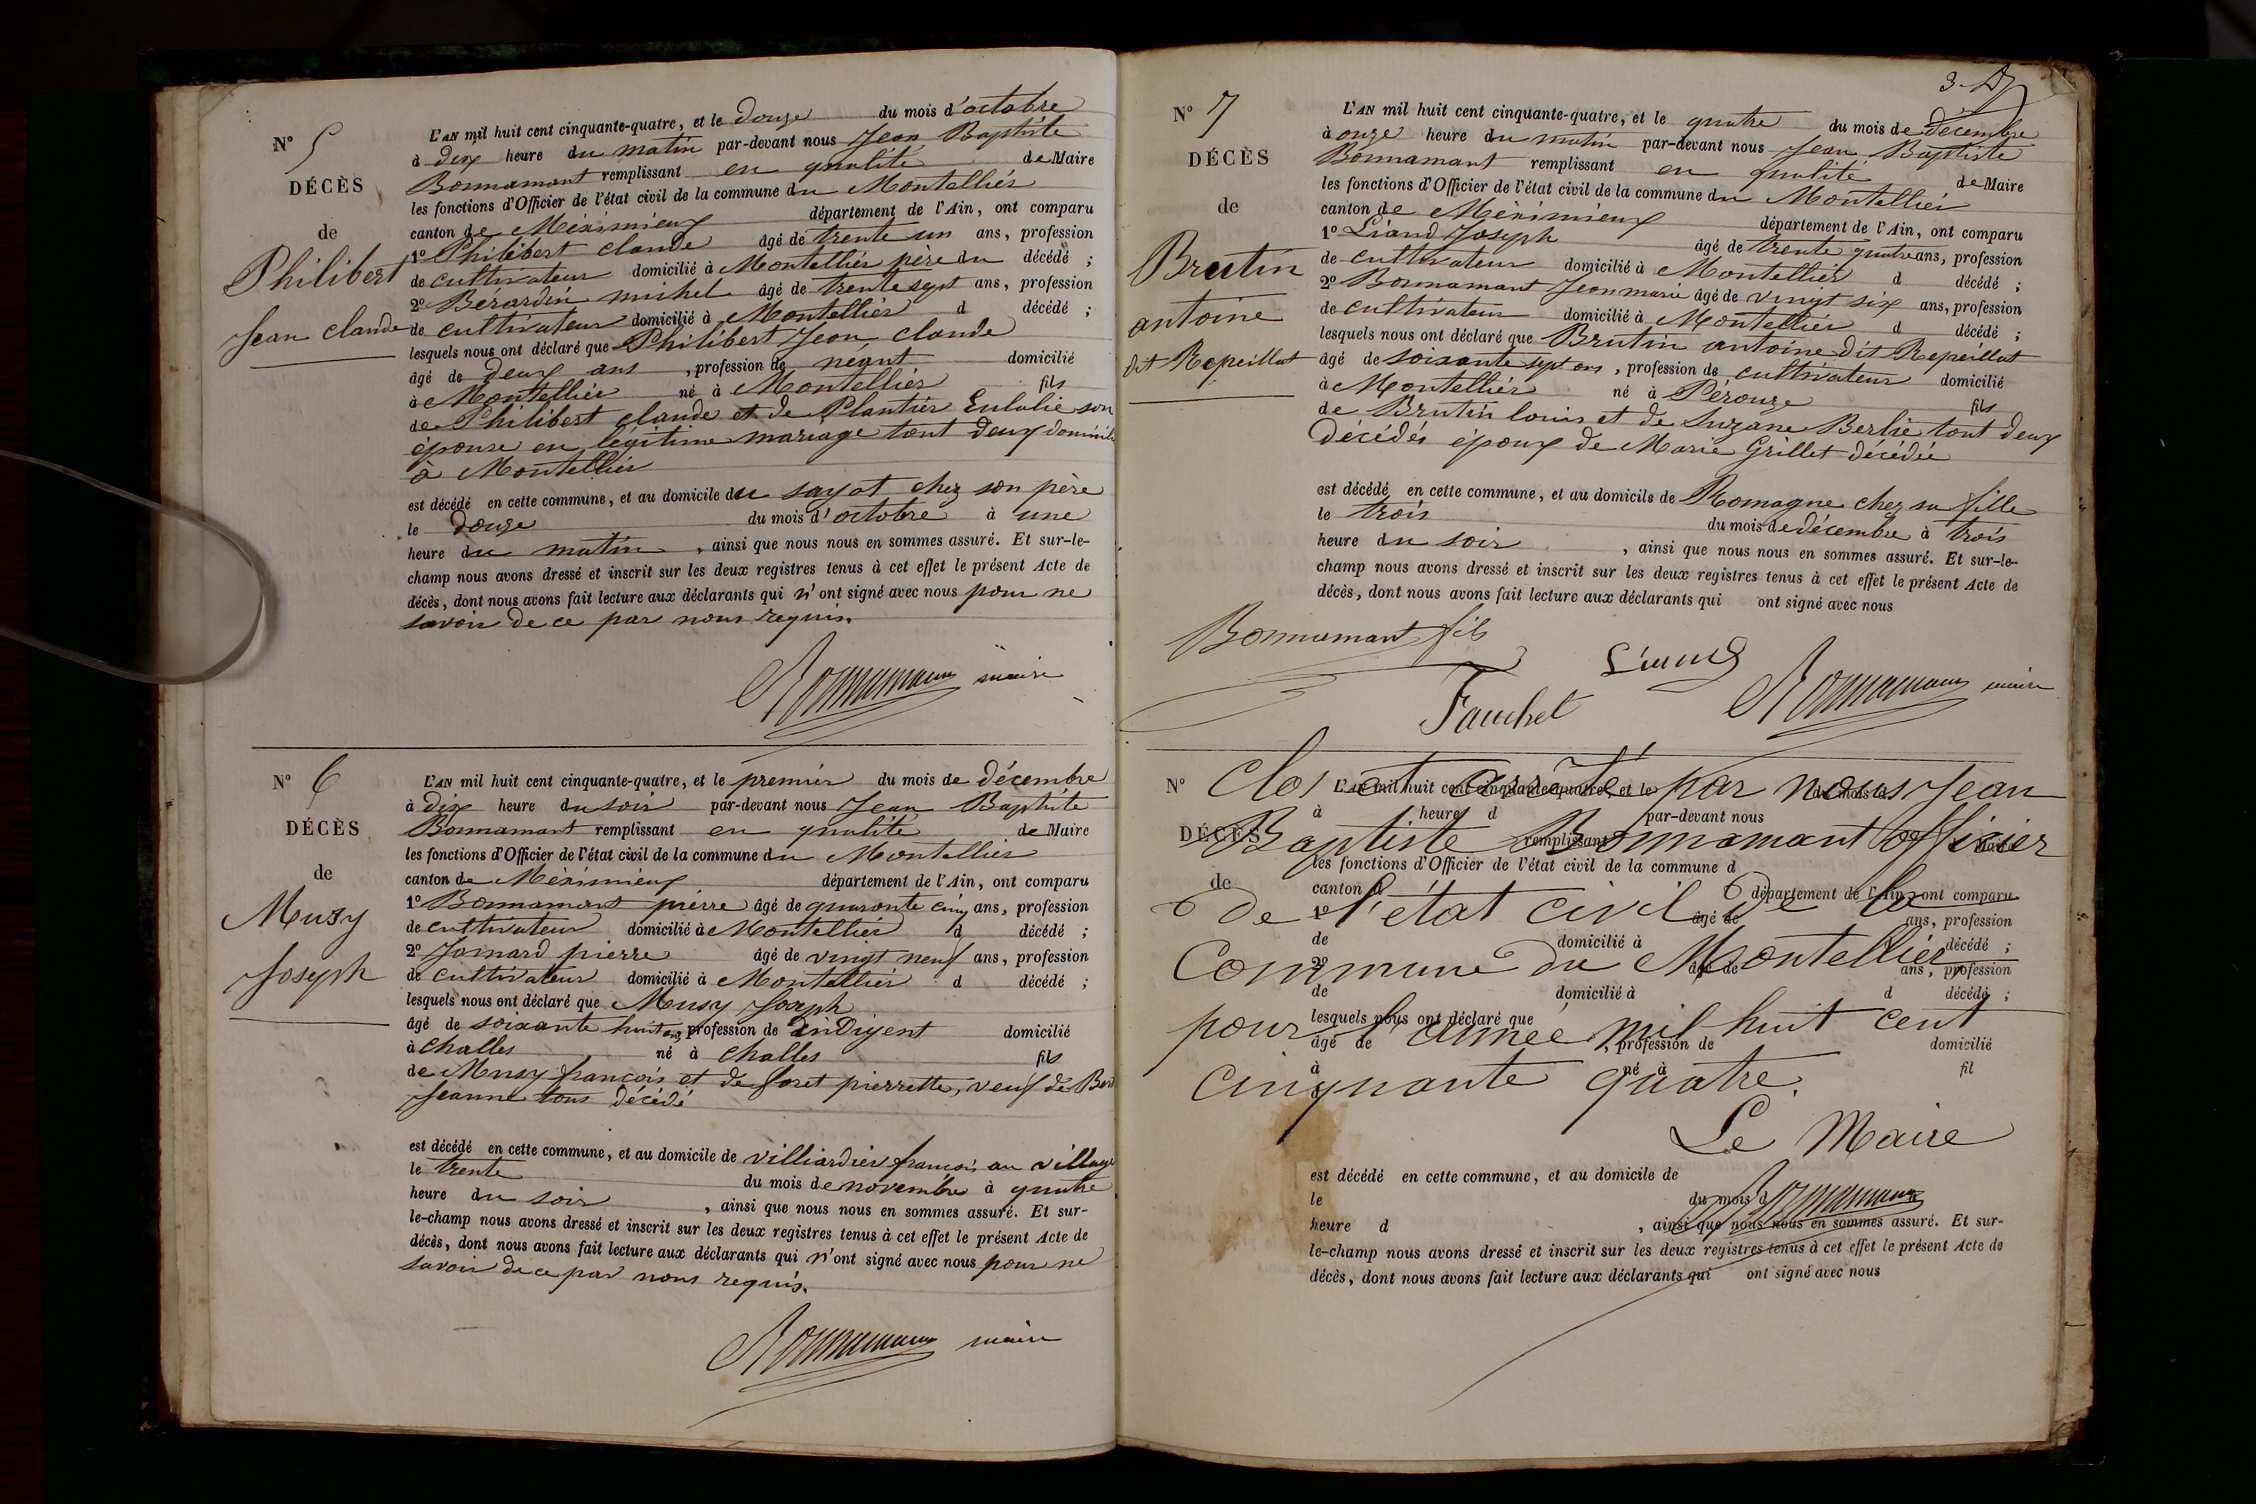 N° 5
DÉCÈS
de
Philibert
Jean claude
L'AN mil huit cent cinquante-quatre, et le douze du mois d'octobre
à dix heure du matin par-devant nous Jean Baptiste
Bonnamant remplissant en qualité de Maire
les fonctions d'Officier de l'état civil de la commune du Montellier
canton de Méximieux département de l'Ain, ont comparu
1° Philibert claude âgé de trente un ans, profession
de cultivateur domicilié à Montellier père du décédé ;
2° Berardin michel âgé de trente sept ans, profession
de cultivateur domicilié à Montellier d décédé ;
lesquels nous ont déclaré que Philibert Jean claude
âgé de deux ans , profession de neant domicilié
à Montellier né à Montellier fils
de Philibert claude et de Plantier Eulalie son
épouse en légitime mariage tout deux domicilié
à Montellier
est décédé en cette commune, et au domicile du sayot chez son père
le douze du mois d'octobre à une
heure du matin , ainsi que nous nous en sommes assuré. Et sur-le-
champ nous avons dressé et inscrit sur les deux registres tenus à cet effet le présent Acte de
décès, dont nous avons fait lecture aux déclarants qui n'ont signé avec nous pour ne
savoir de ce par nous requis.
Bonnamant maire
N° 6
DÉCÈS
de
Musy
Joseph
L'AN mil huit cent cinquante-quatre, et le premier du mois de décembre
à dix heure du soir par-devant nous Jean Baptiste
Bonnamant remplissant en qualité de Maire
les fonctions d'Officier de l'état civil de la commune du Montellier
canton de Méximieux département de l'Ain, ont comparu
1° Bonnamant pierre âgé de quarante cinq ans, profession
de cultivateur domicilié à Montellier d décédé ;
2° Jomard pierre âgé de vingt neuf ans, profession
de cultivateur domicilié à Montellier d décédé ;
lesquels nous ont déclaré que Musy Joseph
âgé de soixante huit ans, profession de indigent domicilié
à challes né à challes fils
de Musy françois et de foret pierrette, veuf de
Jeanne tous décédé
est décédé en cette commune, et au domicile de villiardier françois au village
le trente du mois de novembre à quatre
heure du soir , ainsi que nous nous en sommes assuré. Et sur-
le-champ nous avons dressé et inscrit sur les deux registres tenus à cet effet le présent Acte de
décès, dont nous avons fait lecture aux déclarants qui n'ont signé avec nous pour ne
savoir de ce par nous requis.
Bonnamant maire
3.
N° 7
DÉCÈS
de
Brutin
antoine
dit Repeillat
L'AN mil huit cent cinquante-quatre, et le quatre du mois de décembre
à onze heure du matin par-devant nous Jean Baptiste
Bonnamant remplissant en qualité de Maire
les fonctions d'Officier de l'état civil de la commune du Montellier
canton de Méximieux département de l'Ain, ont comparu
1° Liaud Joseph âgé de trente quatre ans, profession
de cultivateur domicilié à Montellier d décédé ;
2° Bonnamant Jean marie âgé de vingt six ans, profession
de cultivateur domicilié à Montellier d décédé ;
lesquels nous ont déclaré que Brutin antoine dit Repeillat
âgé de soixante sept ans , profession de cultivateur domicilié
à Montellier né à Pérouge fils
de Brutin louis et de Suzane Berlie tout deux
décédés époux de Marie Grillet décédée
est décédé en cette commune, et au domicile de Romagne chez sa fille
le trois du mois de décembre à trois
heure du soir , ainsi que nous nous en sommes assuré. Et sur-le-
champ nous avons dressé et inscrit sur les deux registres tenus à cet effet le présent Acte de
décès, dont nous avons fait lecture aux déclarants qui ont signé avec nous
Bonnamant fils
Liaud
Fauchet
Bonnamant maire
N°
DÉCÈS
de
Clos et arrêté par nous Jean
Baptiste Bonnamant officier
de l'état civil de la
Commune du Montellier
pour l'année mil huit cent
cinquante quatre.
Le Maire
Bonnamant
L'AN mil huit cent cinquante-quatre, et le du mois d
à heure d par-devant nous
remplissant
les fonctions d'Officier de l'état civil de la commune d
canton d département de l'Ain, ont comparu
1° âgé de ans, profession
de domicilié à décédé ;
2° âgé de ans, profession
de domicilié à d décédé ;
lesquels nous ont déclaré que
âgé de , profession de domicilié
à né à fil
est décédé en cette commune, et au domicile de
le du mois d
heure d , ainsi que nous nous en sommes assuré. Et sur-
le-champ nous avons dressé et inscrit sur les deux registres tenus à cet effet le présent Acte de
décès, dont nous avons fait lecture aux déclarants qui ont signé avec nous